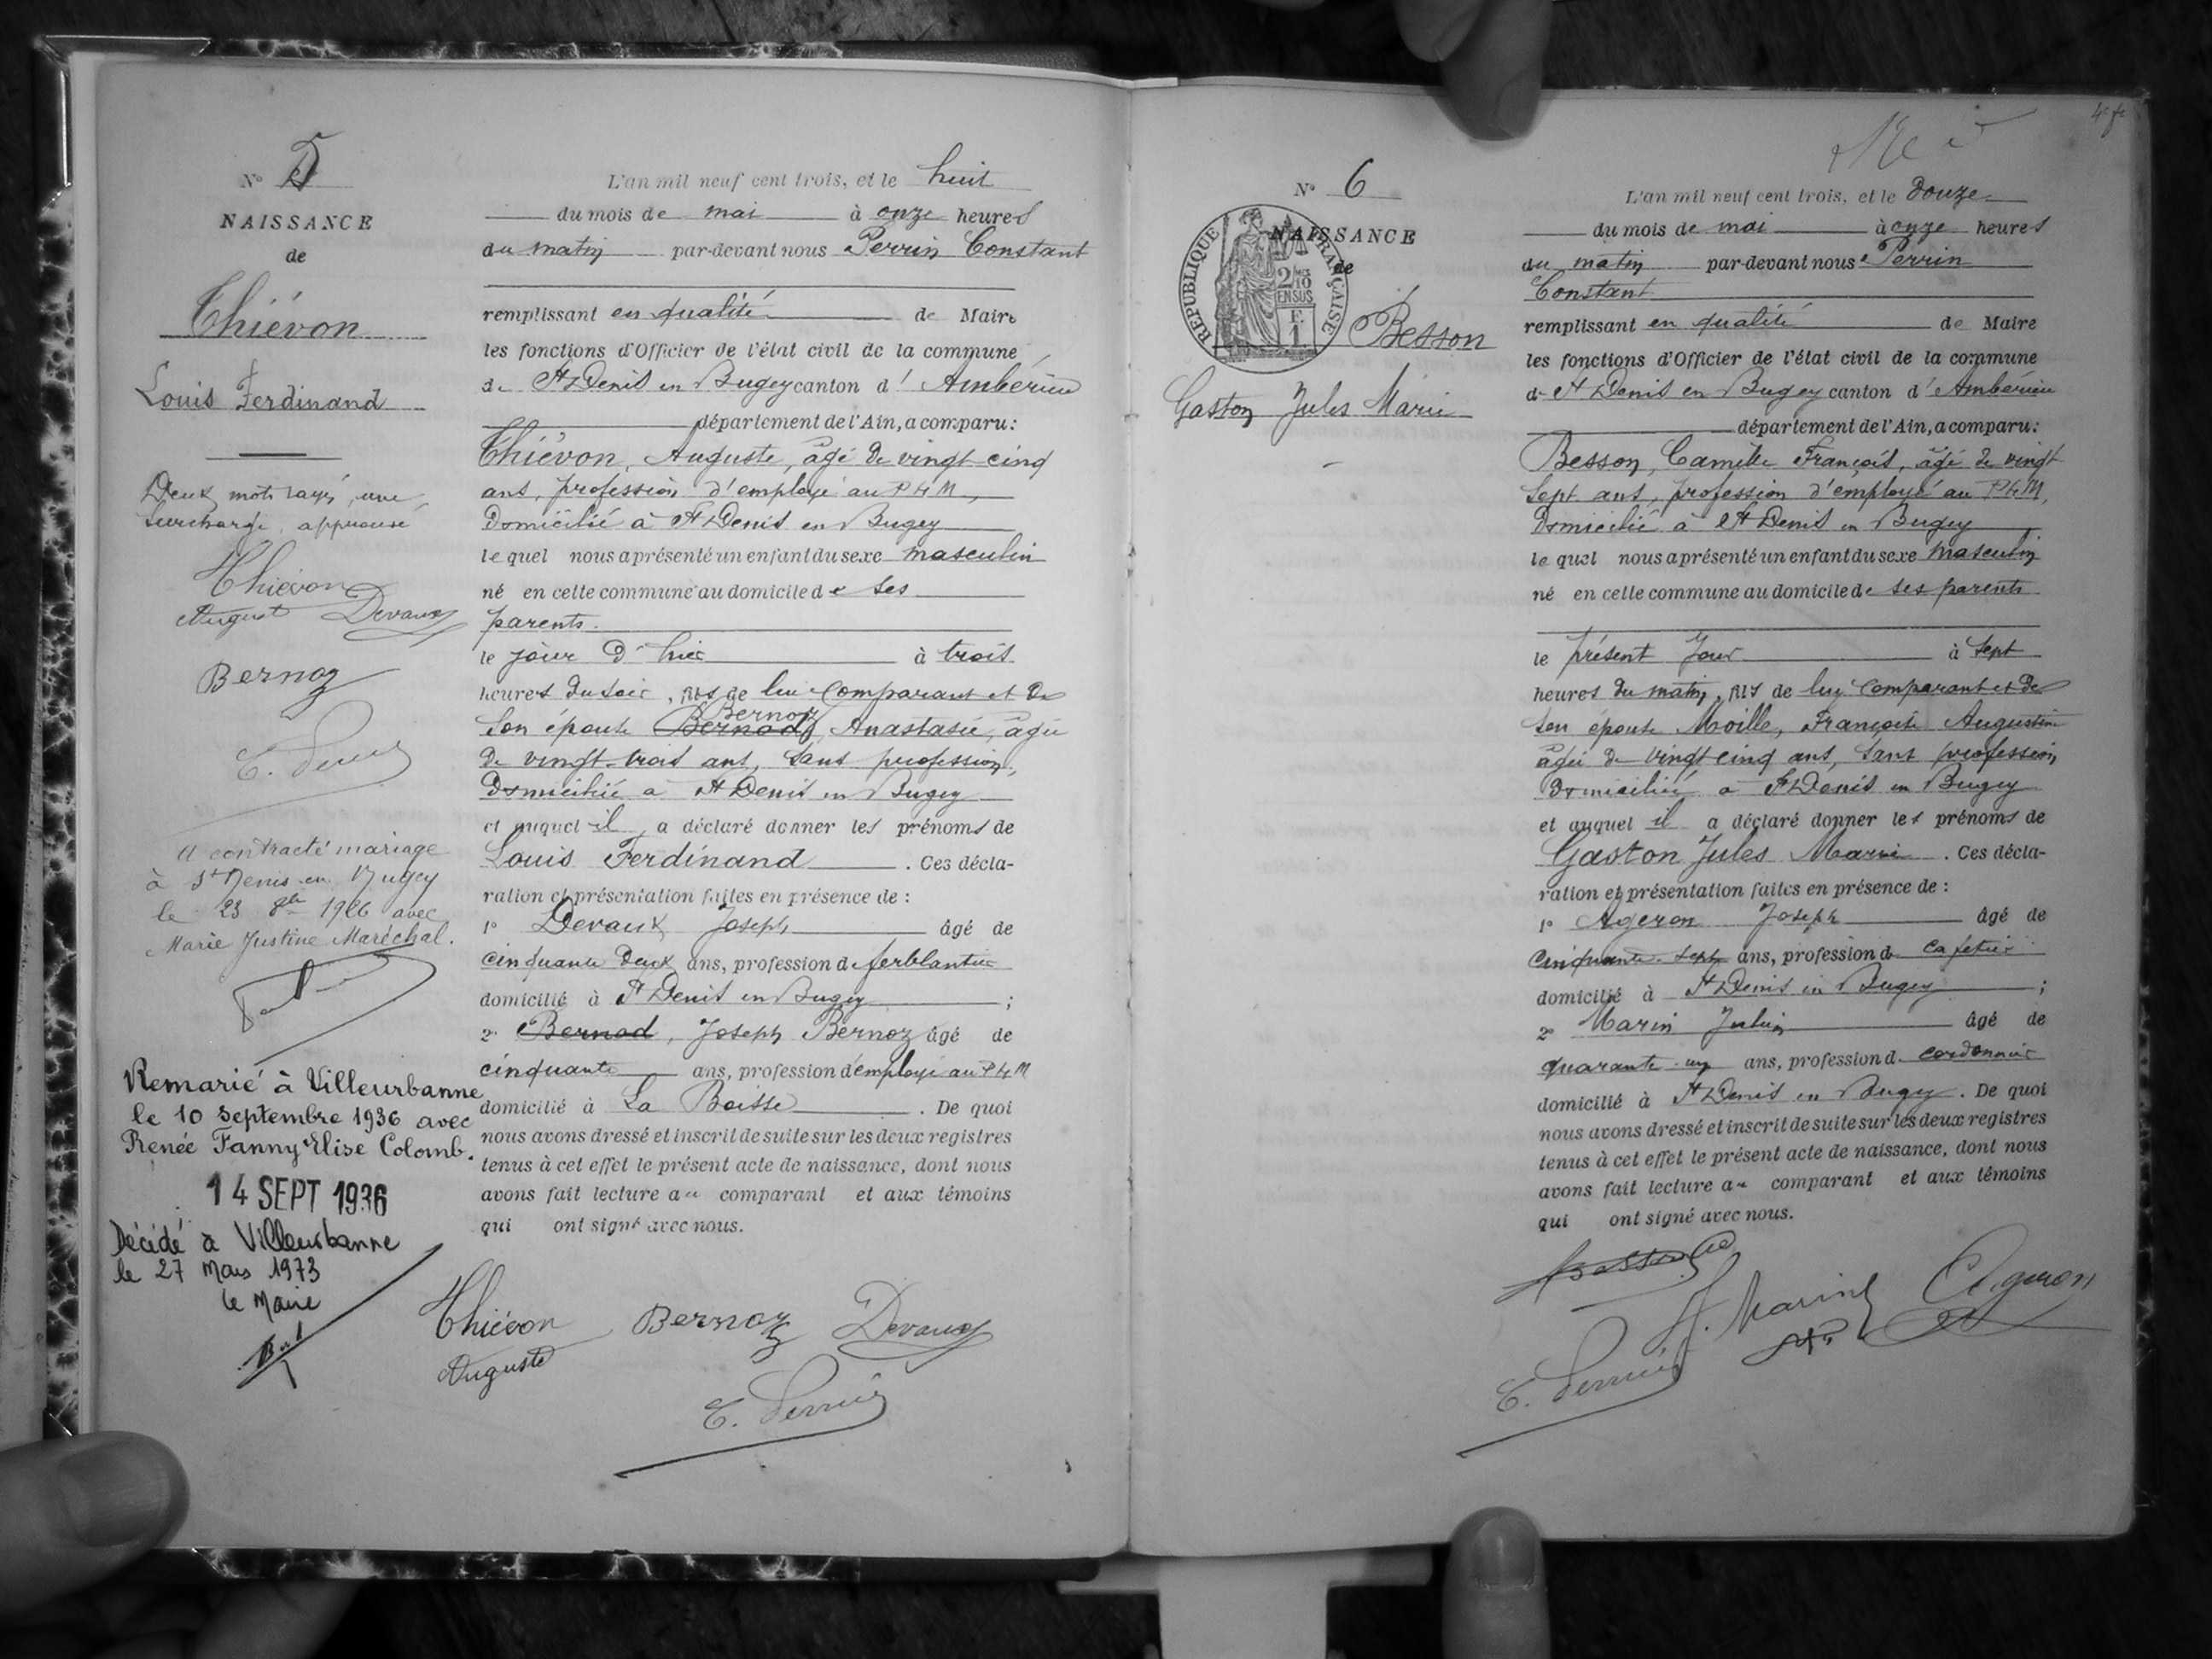 N° 5
NAISSANCE
de
Thiévon
Louis Ferdinand
Deux mots rayés, une
surcharge approuvé
Thiévon
August Devaux
Bernoz
A contracté mariage
à St Denis en Bugey
le 23 8bre 1926 avec
Marie Justine Maréchal.
Remarié à Villeurbanne
le 10 septembre 1936 avec
Renée Fanny Elise Colomb.
14 SEPT 1936
Décédé à Villeurbanne
le 27 Mars 1973
le Maire
L'an mil neuf cent trois, et le huit
du mois de mai à onze heures
du matin par-devant nous Perrin Constant
remplissant en qualité de Maire
les fonctions d'Officier de l'état civil de la commune
de St Denis en Bugey canton d' Ambérieu
département de l'Ain, a comparu:
Thiévon, Auguste, âgé de vingt-cinq
ans, profession d'employé au PLM,
domicilié à St Denis en Bugey
lequel nous a présenté un enfant du sexe masculin
né en cette commune au domicile de ses
parents.
le jour d'hier à trois
heures du soir, fils de lui comparant et de
Bernoz
son épouse Bernod, Anastasie, âgée
de vingt-trois ans, sans profession,
domiciliée à St Denis en Bugey
et auquel il a déclaré donner les prénoms de
Louis Ferdinand. Ces décla-
ration et présentation faites en présence de :
1° Devaux Joseph âgé de
cinquante deux ans, profession de ferblantier
domicilié à St Denis en Bugey ;
2° Bernod, Joseph Bernoz âgé de
cinquante ans, profession d'employé au PLM
domicilié à La Boisse. De quoi
nous avons dressé et inscrit de suite sur les deux registres
tenus à cet effet le présent acte de naissance, dont nous
avons fait lecture au comparant et aux témoins
qui ont signé avec nous.
Thiévon Bernoz Devaux
Auguste
C. Perrin
4e f.
N° 6
NAISSANCE
de
RÉPUBLIQUE FRANÇAISE
2/10
EN SUS
F.
1
Besson
Gaston Jules Marie
L'an mil neuf cent trois, et le douze
du mois de mai à onze heures
du matin par-devant nous Perrin
Constant
remplissant en qualité de Maire
les fonctions d'Officier de l'état civil de la commune
de St Denis en Bugey canton d' Ambérieu
département de l'Ain, a comparu:
Besson, Camille François, âgé de vingt
sept ans, profession d'employé au PLM,
domicilié à St Denis en Bugey
lequel nous a présenté un enfant du sexe masculin
né en cette commune au domicile de ses parents
le présent jour à sept
heures du matin, fils de lui comparant et de
son épouse Moille, Françoise Augustine
âgée de vingt cinq ans, sans profession,
domiciliée à St Denis en Bugey
et auquel il a déclaré donner les prénoms de
Gaston Jules Marie. Ces décla-
ration et présentation faites en présence de :
1° Ageron Joseph âgé de
cinquante-sept ans, profession de cafetier
domicilié à St Denis en Bugey ;
2° Marin Julien âgé de
quarante-un ans, profession de cordonnier
domicilié à St Denis en Bugey. De quoi
nous avons dressé et inscrit de suite sur les deux registres
tenus à cet effet le présent acte de naissance, dont nous
avons fait lecture au comparant et aux témoins
qui ont signé avec nous.
Besson
J. Marin Ageron
C. Perrin